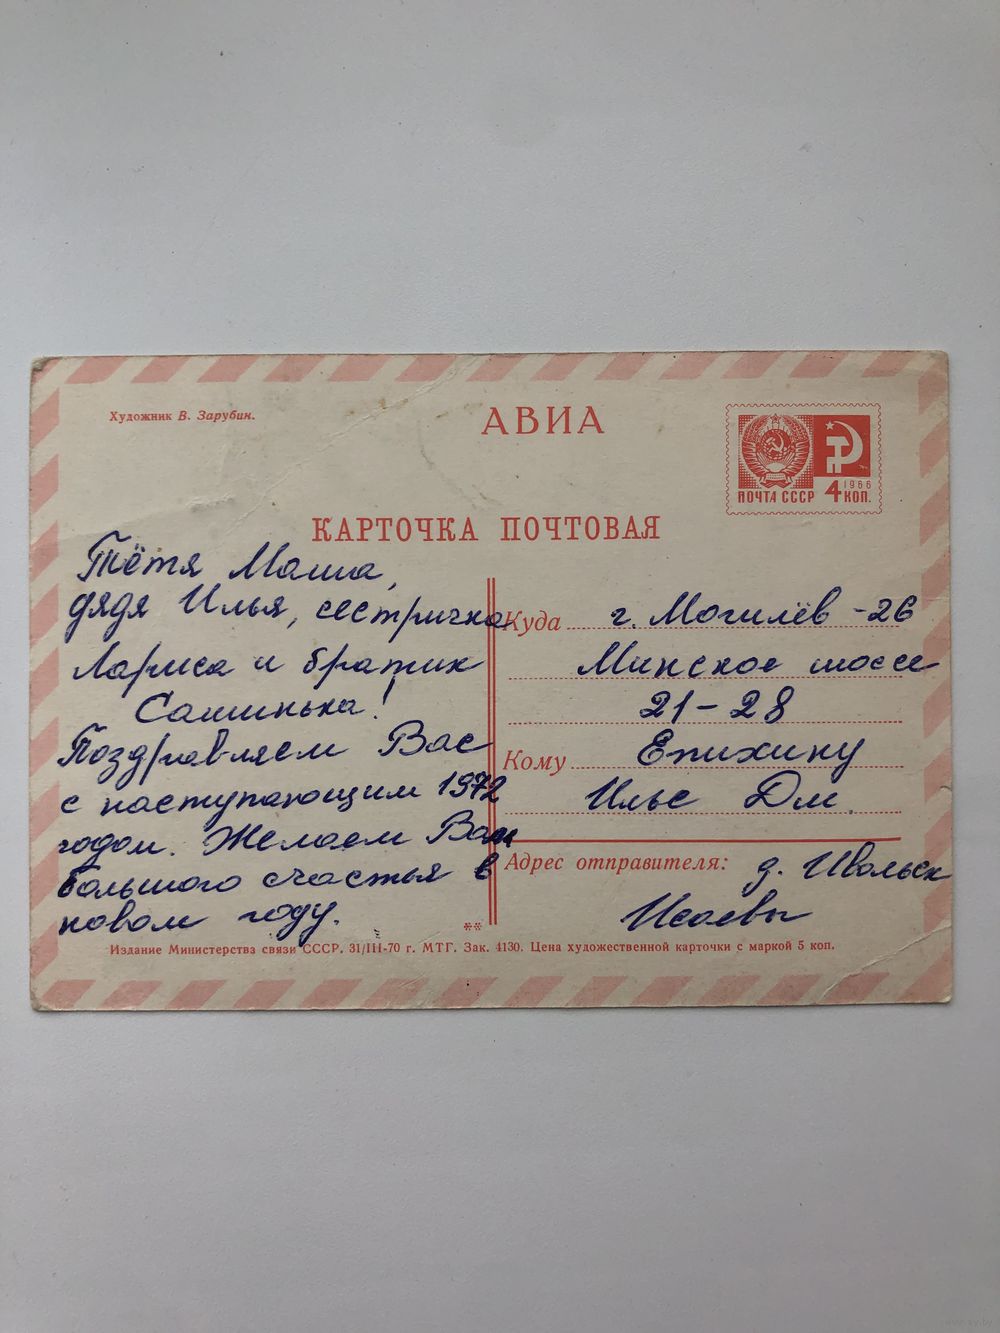 Художник В. Зарубин.
АВИА
ПОЧТА СССР
1966
4 КОП.
КАРТОЧКА ПОЧТОВАЯ
Тётя Маша,
дядя Илья, сестричка
Лариса и братик
Сашинька!
Поздравляем Вас
с наступающим 1972
годом. Желаем Вам
большого счастья в
новом году.
Куда г. Могилёв-26
Минское шоссе
21-28
Кому Епихину
Илье Дм.
Адрес отправителя: д. Ивольск
Исаевы
**
Издание Министерства связи СССР. 31/III-70 г. МТГ. Зак. 4130. Цена художественной карточки с маркой 5 коп.